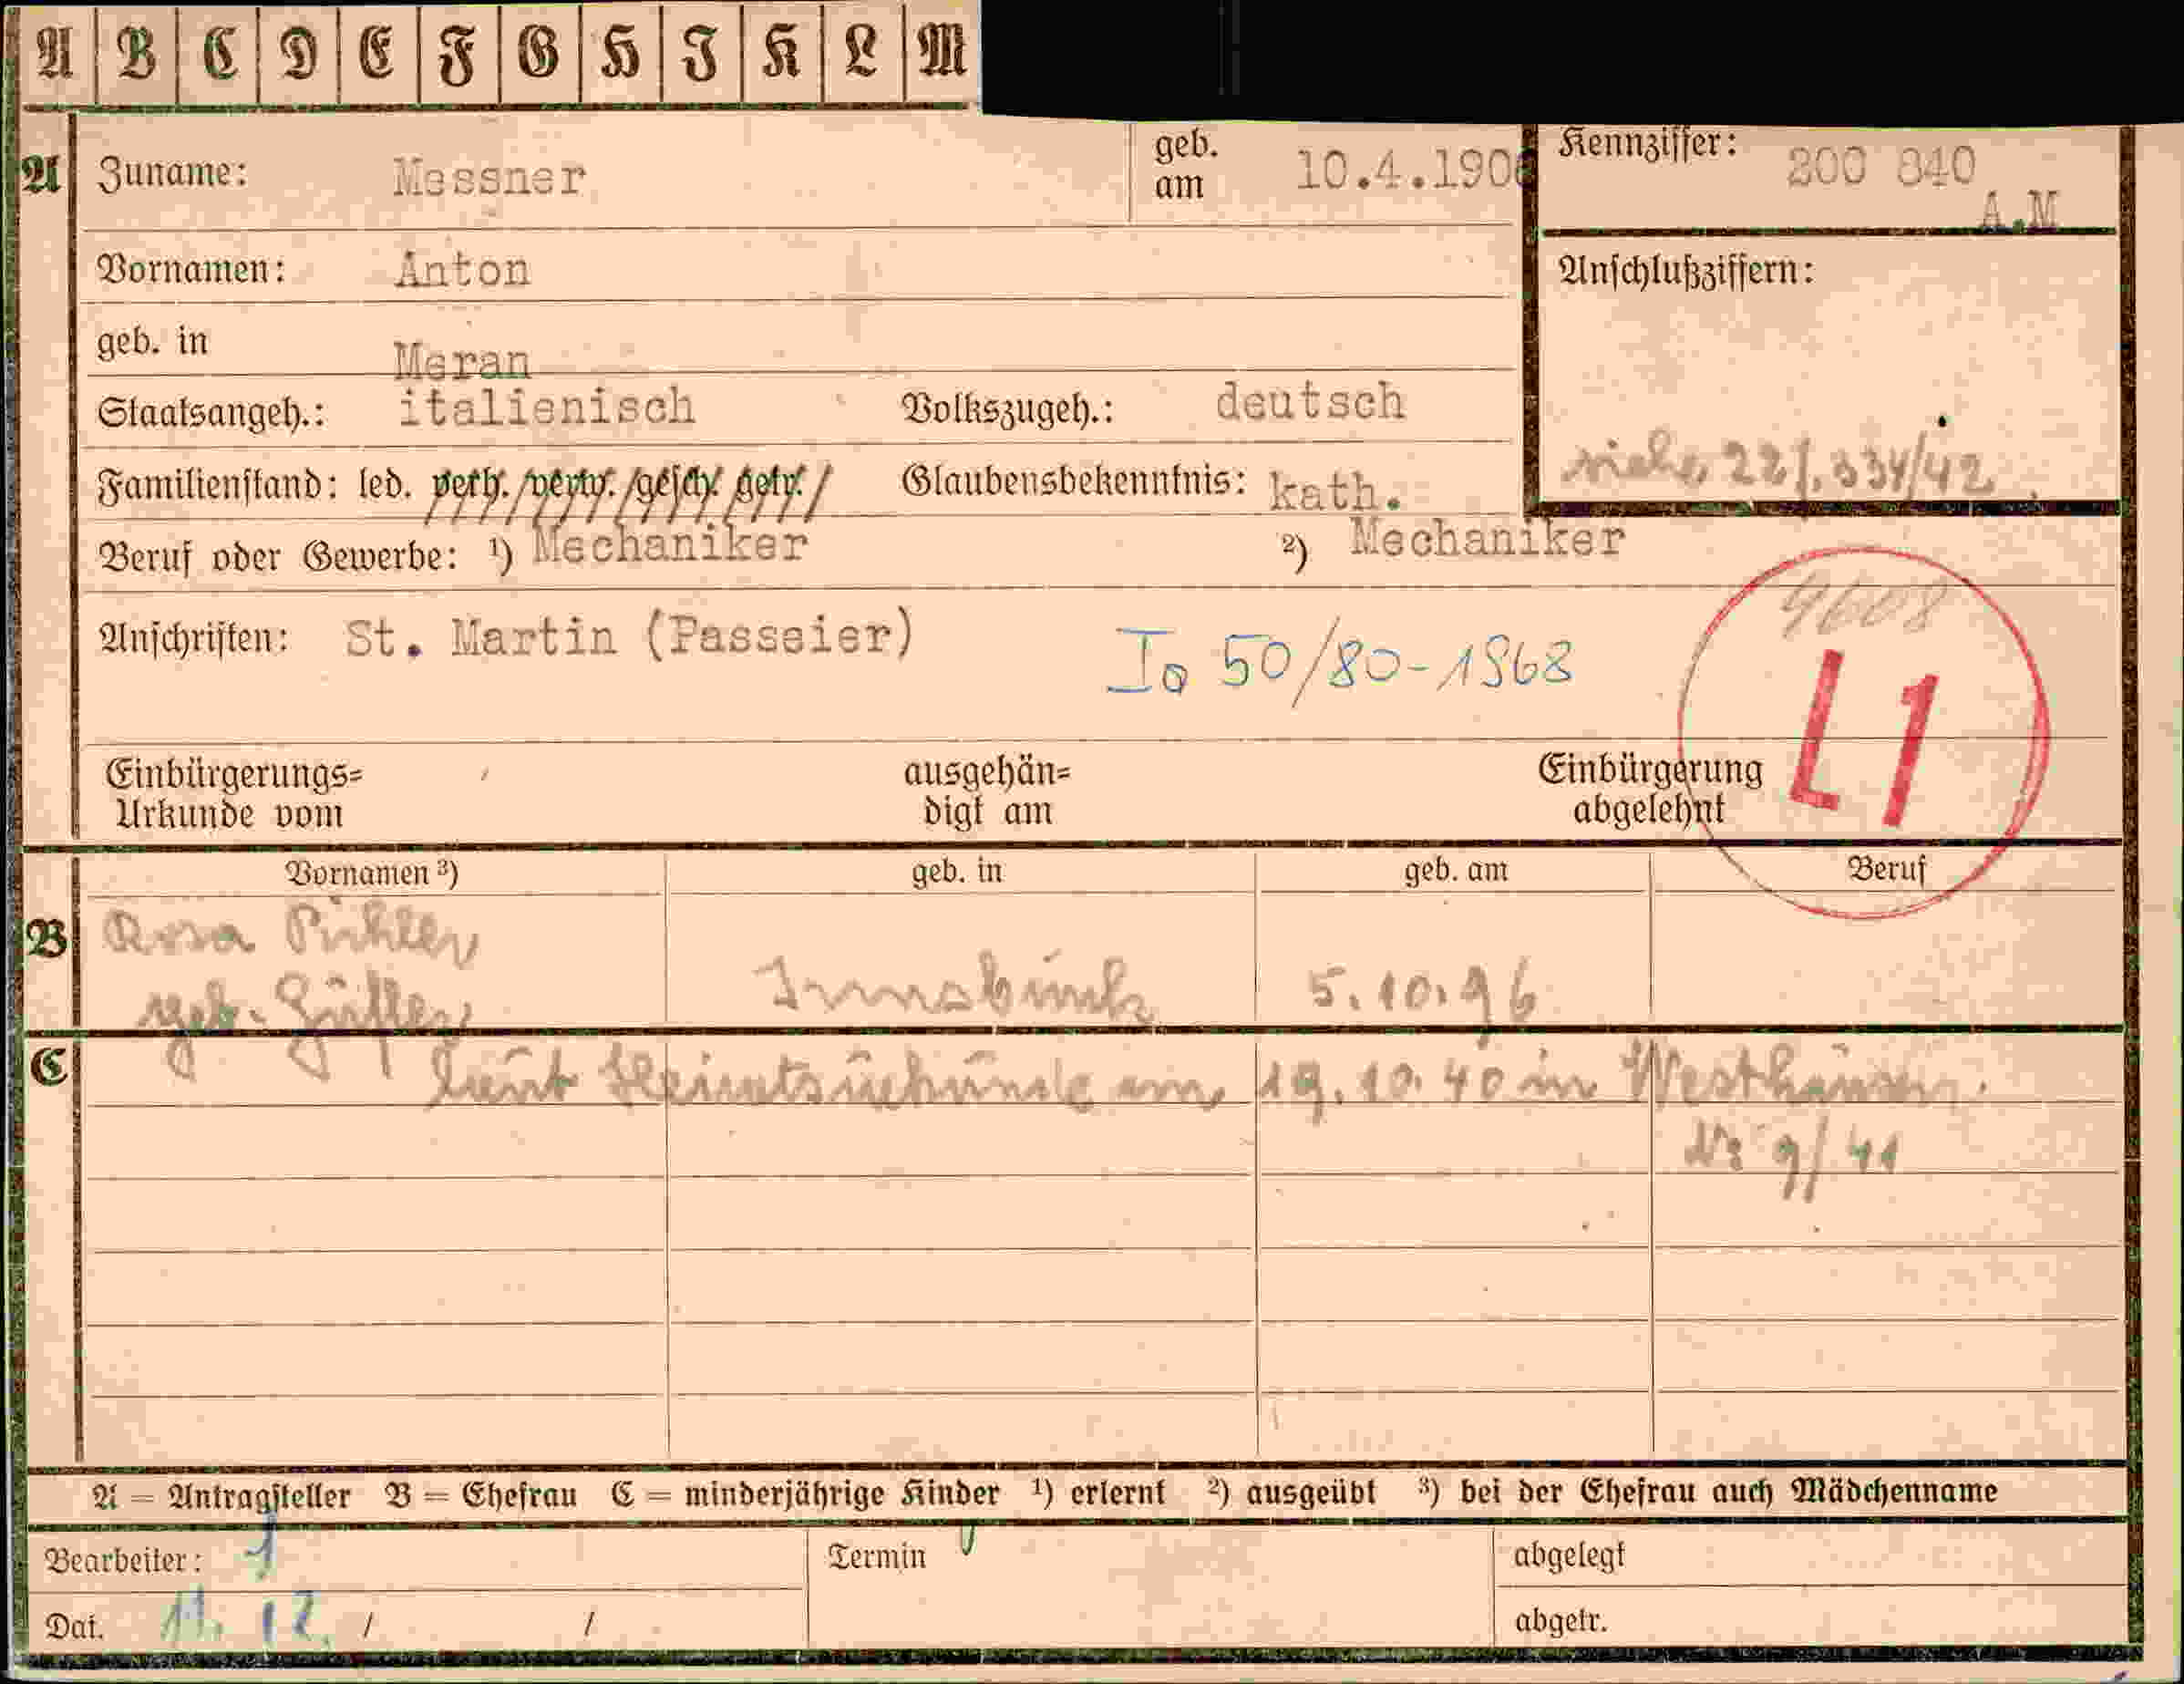 A B C D E F G H I K L M
A Zuname: Messner geb. am 10.4.190 Kennziffer: 200 840
A.M
Vornamen: Anton Anschlußziffern:
geb. in Meran
Staatsangeh.: italienisch Volkszugeh.: deutsch
siehe 221.334/42
Familienstand: led. verh. / verw. / gesch. getr. / Glaubensbekenntnis: kath.
Beruf oder Gewerbe: ¹) Mechaniker ²) Mechaniker
9608
Anschriften: St. Martin (Passeier) Ia 50/80-1968
L1
Einbürgerungs= ausgehän= Einbürgerung
Urkunde vom digt am abgelehnt
Vornamen ³) geb. in geb. am Beruf
B Rosa Pichler
geb. Innsbruck 5.10.96
C laut Heiratsurkunde am 19.10.40 in Westhausen.
Nr 9/41
A = Antragsteller B = Ehefrau C = minderjährige Kinder ¹) erlernt ²) ausgeübt ³) bei der Ehefrau auch Mädchenname
Bearbeiter: 1 Termin abgelegt
Dat. 11. 12. / / abgetr.